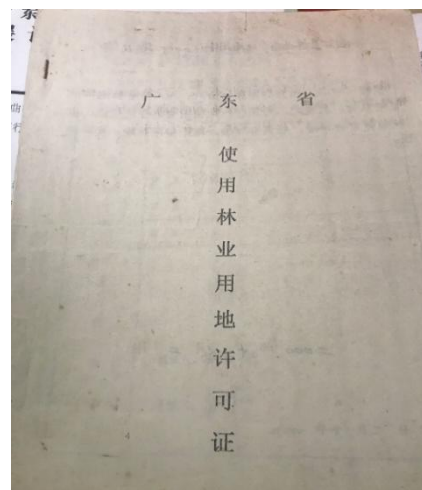 广东省
使用林业用地许可证